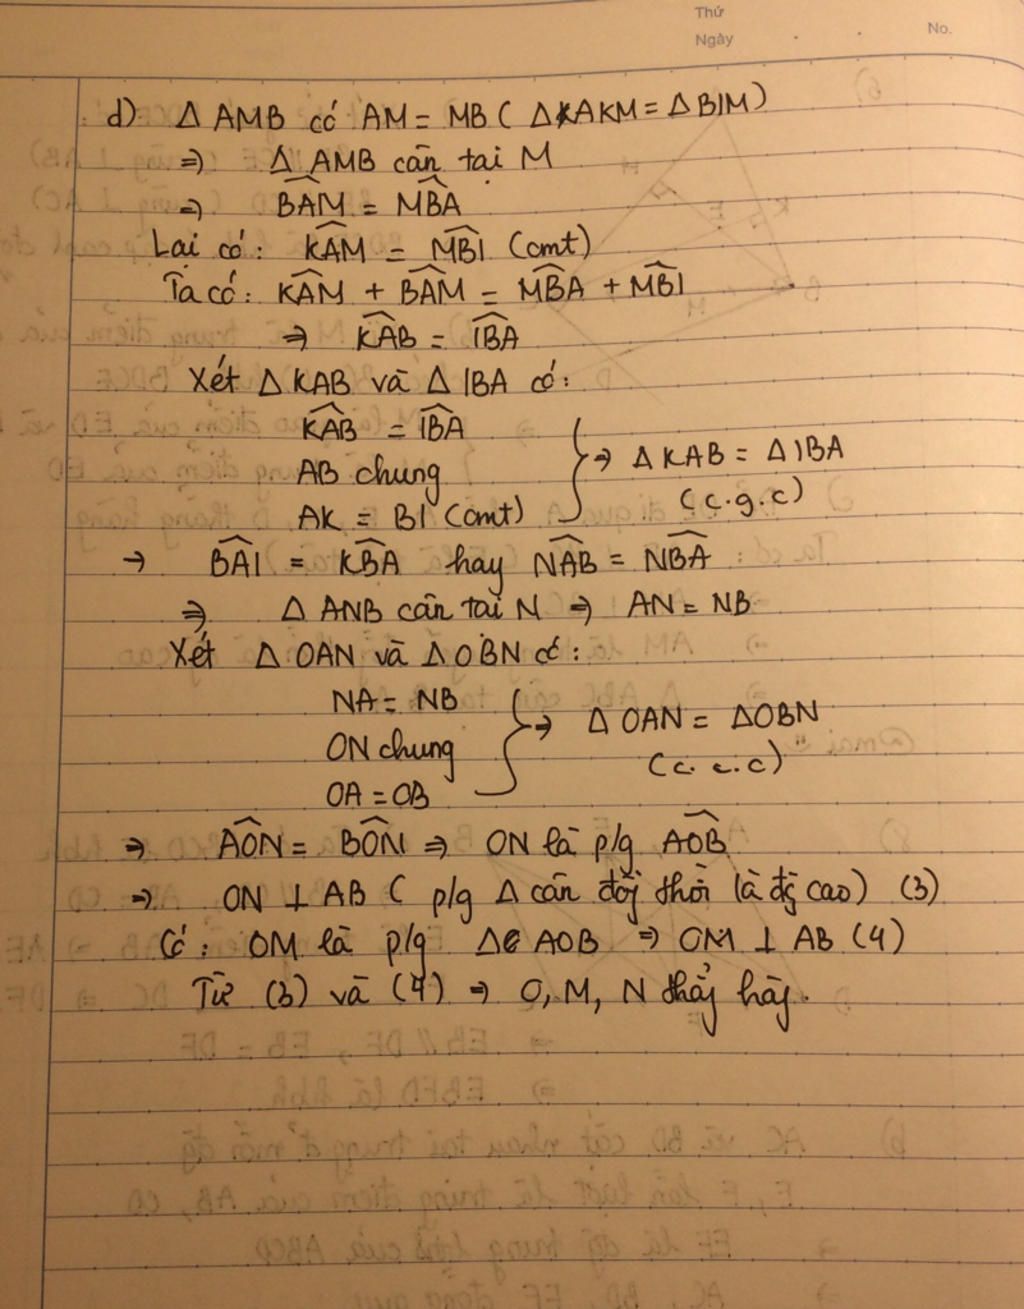 Thứ
Ngày
No.
d) Δ AMB có AM = MB ( ΔAKM = ΔBIM )
⇒ Δ AMB cân tại M
⇒ \widehat{BAM} = \widehat{MBA}
Lại có: \widehat{KAM} = \widehat{MBI} (cmt)
Ta có: \widehat{KAM} + \widehat{BAM} = \widehat{MBA} + \widehat{MBI}
⇒ \widehat{KAB} = \widehat{IBA}
Xét Δ KAB và Δ IBA có:
\widehat{KAB} = \widehat{IBA}
AB chung
AK = BI (cmt)
⇒ Δ KAB = Δ IBA
(c.g.c)
→ \widehat{BAI} = \widehat{KBA} hay \widehat{NAB} = \widehat{NBA}
⇒ Δ ANB cân tại N ⇒ AN = NB
Xét Δ OAN và Δ OBN có:
NA = NB
ON chung
OA = OB
⇒ Δ OAN = ΔOBN
(c.c.c)
⇒ \widehat{AON} = \widehat{BON} ⇒ ON là p/g \widehat{AOB}
⇒ ON ⊥ AB ( p/g Δ cân đồg thời là đg cao) (3)
Có: OM là p/g ΔC AOB ⇒ OM ⊥ AB (4)
Từ (3) và (4) ⇒ O, M, N thẳg hàg.